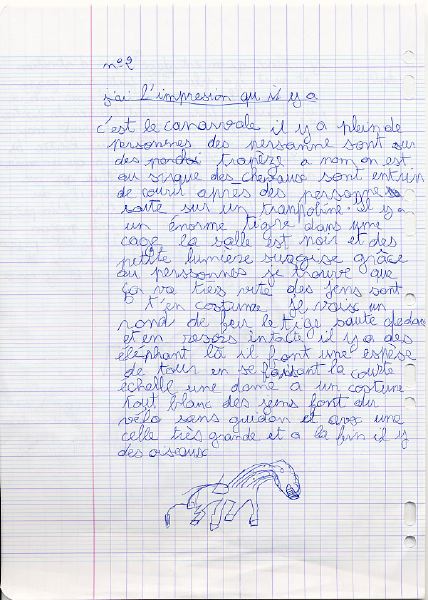 n°2
j'ai l'impresion qu'il y a
c'est le canarvale il y a plein de
personnes des personne sont sur
des trapèze a nom on est
au sirque des chevause sont entrin
de courir après des personne
saute sur un tranpoline. il y a
un énorme tigre dans une
cage la salle est noir et des
petite lumière surgise grâce
au perssonnes je trouve que
ça va très vite des jens sont
t'en costume. je vois un
rond de feu le tige saute dedans
et en resors intacte il y a des
éléphant là il font une espèse
de tour en se faisant la courte
échelle une dame a un costume
tout blanc des jens font du
vélo sans guidon et avx une
celle très grande et a la fin il y
des oiseaux